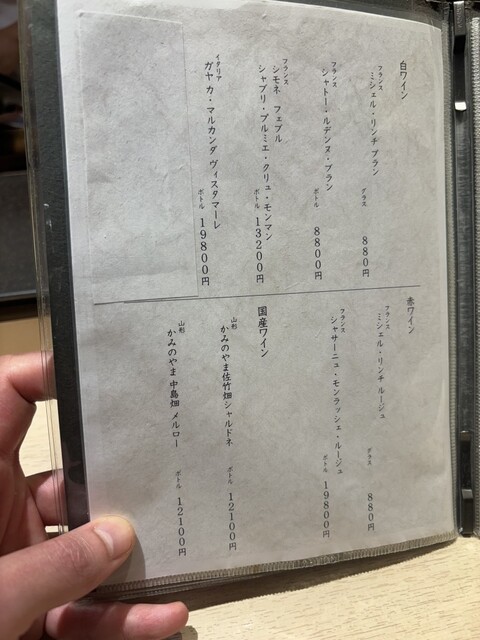 白ワイン
フランス
ミシェル・リンチ ブラン
グラス 880円
フランス
シャトー・ルデンヌ・ブラン
ボトル 8800円
フランス
シモネ フェブル
シャブリ・プルミエ・クリュ・モンマン
ボトル 13200円
イタリア
ガヤ カ・マルカンダ ヴィスタマーレ
ボトル 19800円
赤ワイン
フランス
ミシェル・リンチ ルージュ
グラス 880円
フランス
シャサーニュ・モンラッシェ・ルージュ
ボトル 19800円
国産ワイン
山形
かみのやま佐竹畑シャルドネ
ボトル 12100円
山形
かみのやま 中島畑 メルロー
ボトル 12100円